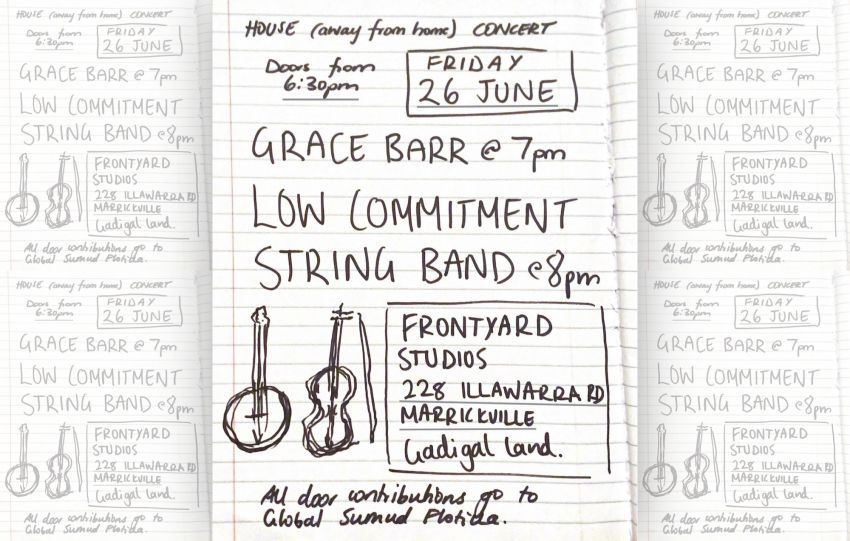 HOUSE (away from home) CONCERT
Doors from
6:30pm
FRIDAY
26 JUNE
GRACE BARR @ 7pm
LOW COMMITMENT
STRING BAND @ 8pm
FRONTYARD
STUDIOS
228 ILLAWARRA RD
MARRICKVILLE
Gadigal Land.
All door contributions go to
Global Sumud Flotilla.